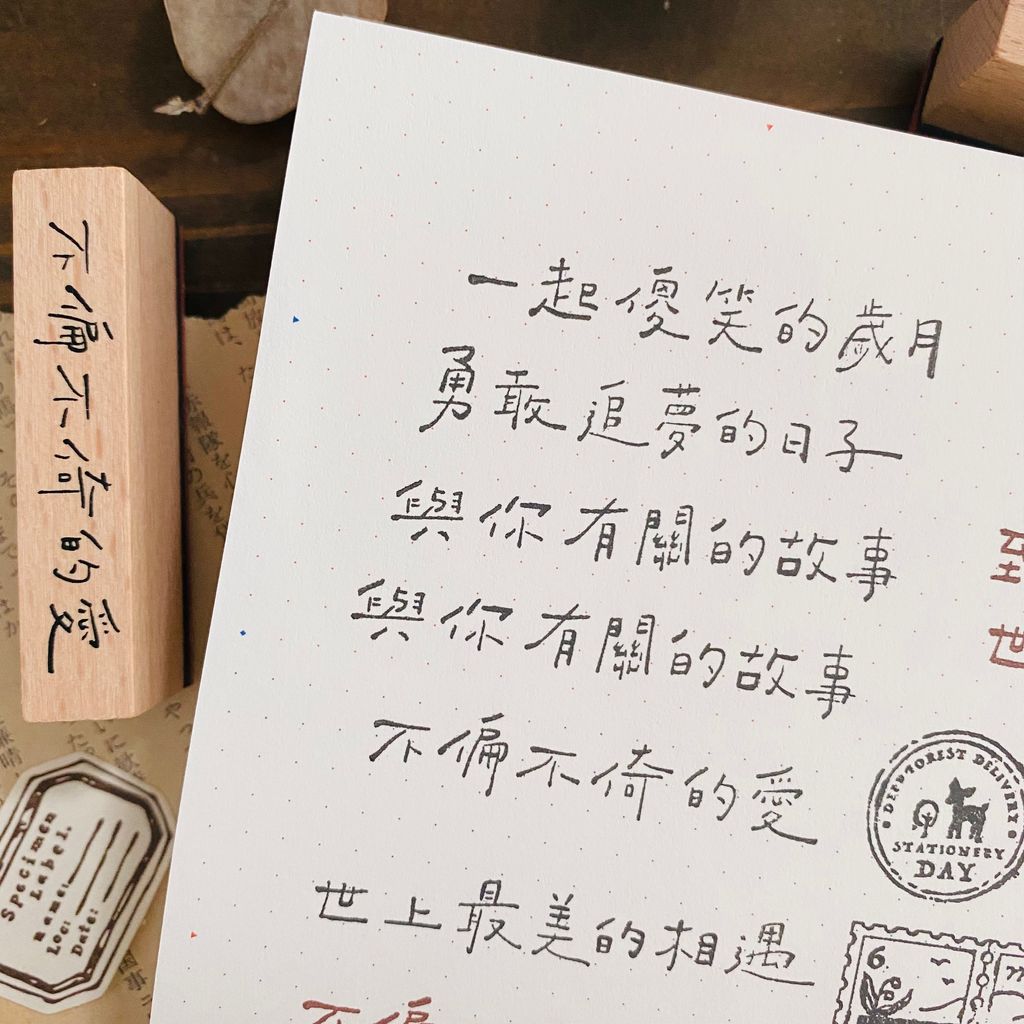 不偏不倚的愛
一起傻笑的歲月
勇敢追夢的日子
與你有關的故事
與你有關的故事
不偏不倚的愛
世上最美的相遇
不偏
至
世
DEPT FOREST DELIVERY
STATIONERY
DAY
6
Specimen
Label.
Name:
Loc:
Date: